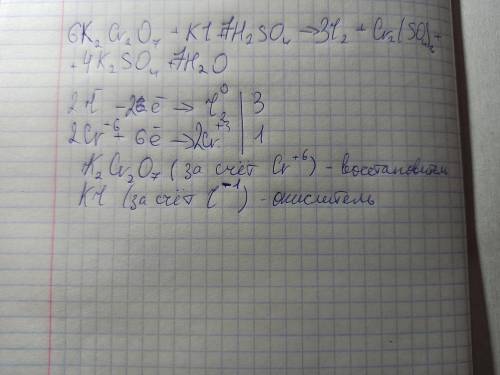 6K₂Cr₂O₇ + KI + 7H₂SO₄ → 3I₂ + Cr₂(SO₄)₃ +
+ 4K₂SO₄ + 7H₂O
2I⁻ - 2ē → I₂⁰ | 3
2Cr⁺⁶ - 6ē → 2Cr⁺³ | 1
K₂Cr₂O₇ (за счёт Cr⁺⁶) - восстановитель
KI (за счёт I⁻¹) - окислитель